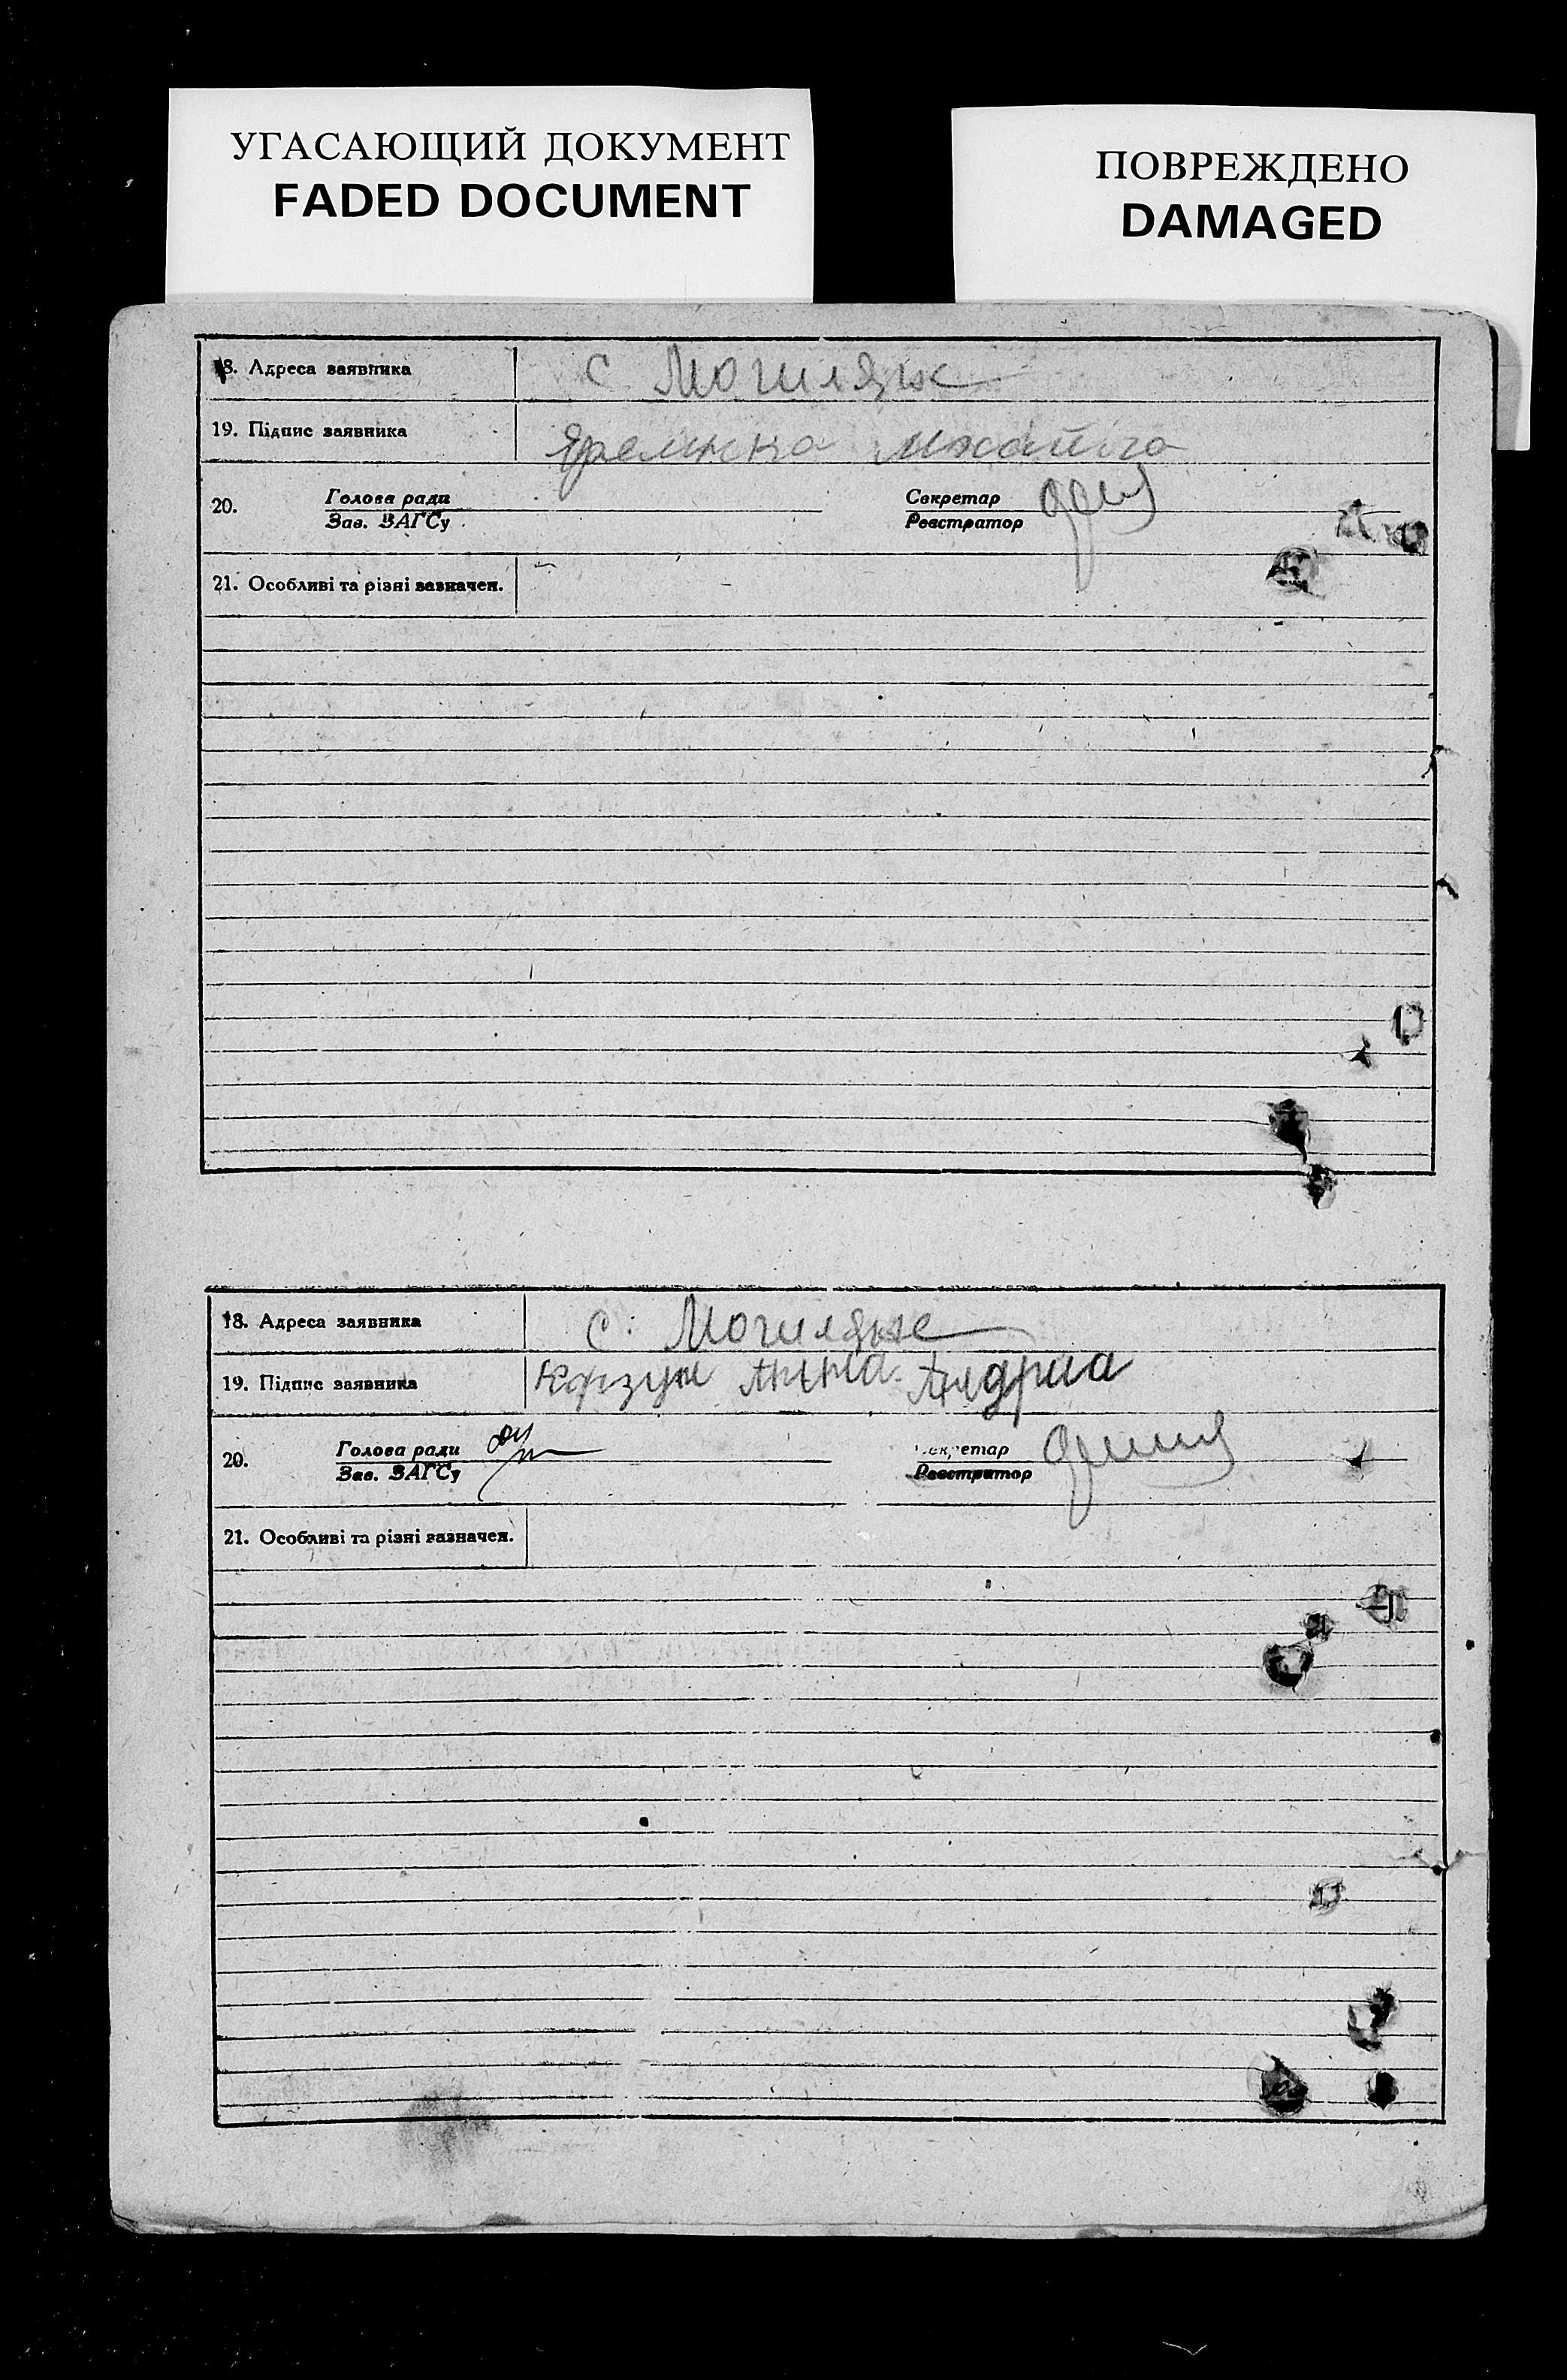 УГАСАЮЩИЙ ДОКУМЕНТ
FADED DOCUMENT
ПОВРЕЖДЕНО
DAMAGED
18. Адреса заявника с
19. Підпис заявника
20. Голова ради Секретар
Зав. ЗАГСу Реєстратор
21. Особливі та різні зазначен.
18. Адреса заявника с.
19. Підпис заявника Корзун Анна
20. Голова ради Секретар
Зав. ЗАГСу Реєстратор
21. Особливі та різні зазначен.